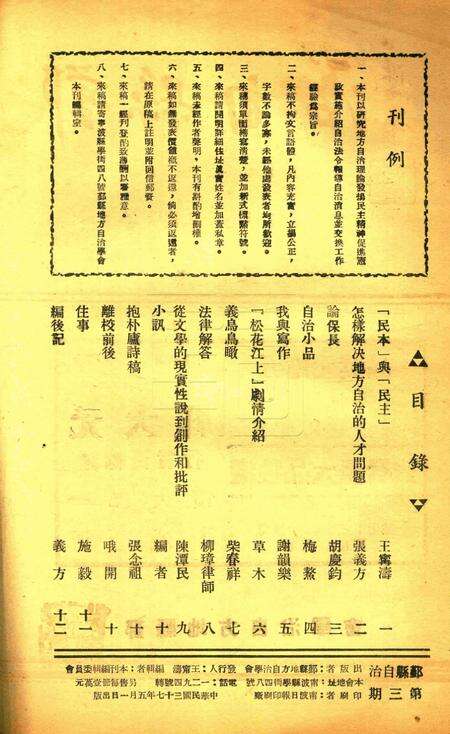 刊例
一、本刊以研究地方自治理論發揚民主精神促進憲
政實施介紹自治法令報導自治消息並交換工作
經驗為宗旨。
二、來稿不拘文言語體，凡內容充實，立場公正，
字數不論多寡，未經他處發表者均所歡迎。
三、來稿須單面繕寫清楚，並加新式標點符號。
四、來稿請開明詳細住址眞實姓名並加蓋私章。
五、來稿未經作者聲明，本刊有斟酌增刪權。
六、來稿如無發表價值概不返還，倘必須返還者，
請在原稿上註明並附回信郵資。
七、來稿一經刊登酌致薄酬以署雅意。
八、來稿請寄寧波縣學街四八號鄞縣地方自治學會
本刊編輯室。
目錄
「民本」與「民主」 王寗濤 一
怎樣解決地方自治的人才問題 張義方 二
論保長 胡慶鈞 三
自治小品 梅熬 四
我與寫作 謝韻樂 五
「松花江上」劇情介紹 草木 六
義烏鳥瞰 柴春祥 七
法律解答 柳璋律師 八
從文學的現實性說到創作和批評 陳潭民 九
小訊 編者 十
抱朴廬詩稿 張念祖 十
離校前後 哦開 十
佳事 施毅 十一
編後記 義方 十二
鄞縣自治
第三期
出版者：鄞縣地方自治學會
本會地址：寧波縣學街四八號
印刷者：寧波日報印刷廠
發行人：王寗濤
電話：一二九四號轉
編輯者：本刊編輯委員會
另售每冊壹萬元
中華民國三十七年五月一日出版